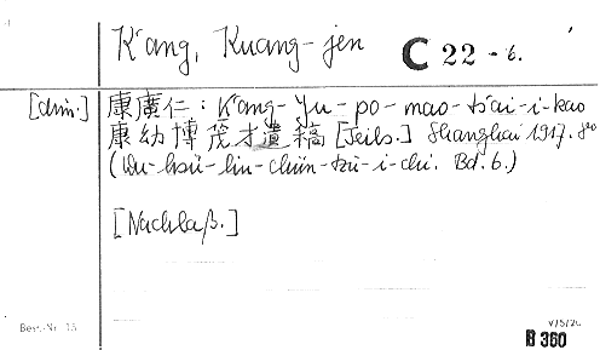 K'ang, Kuang-jen C 22 - 6.
[chin.] 康廣仁: K'ang-Yu-po-mao-ts'ai-i-kao
康幼博茂才遺稿 [Teils.] Shanghai 1917. 8°
(Wu-hsü-liu-chün-tzu-i-chi. Bd. 6.)
[Nachlaß.]
Best.-Nr. 13
V/5/20
B 360